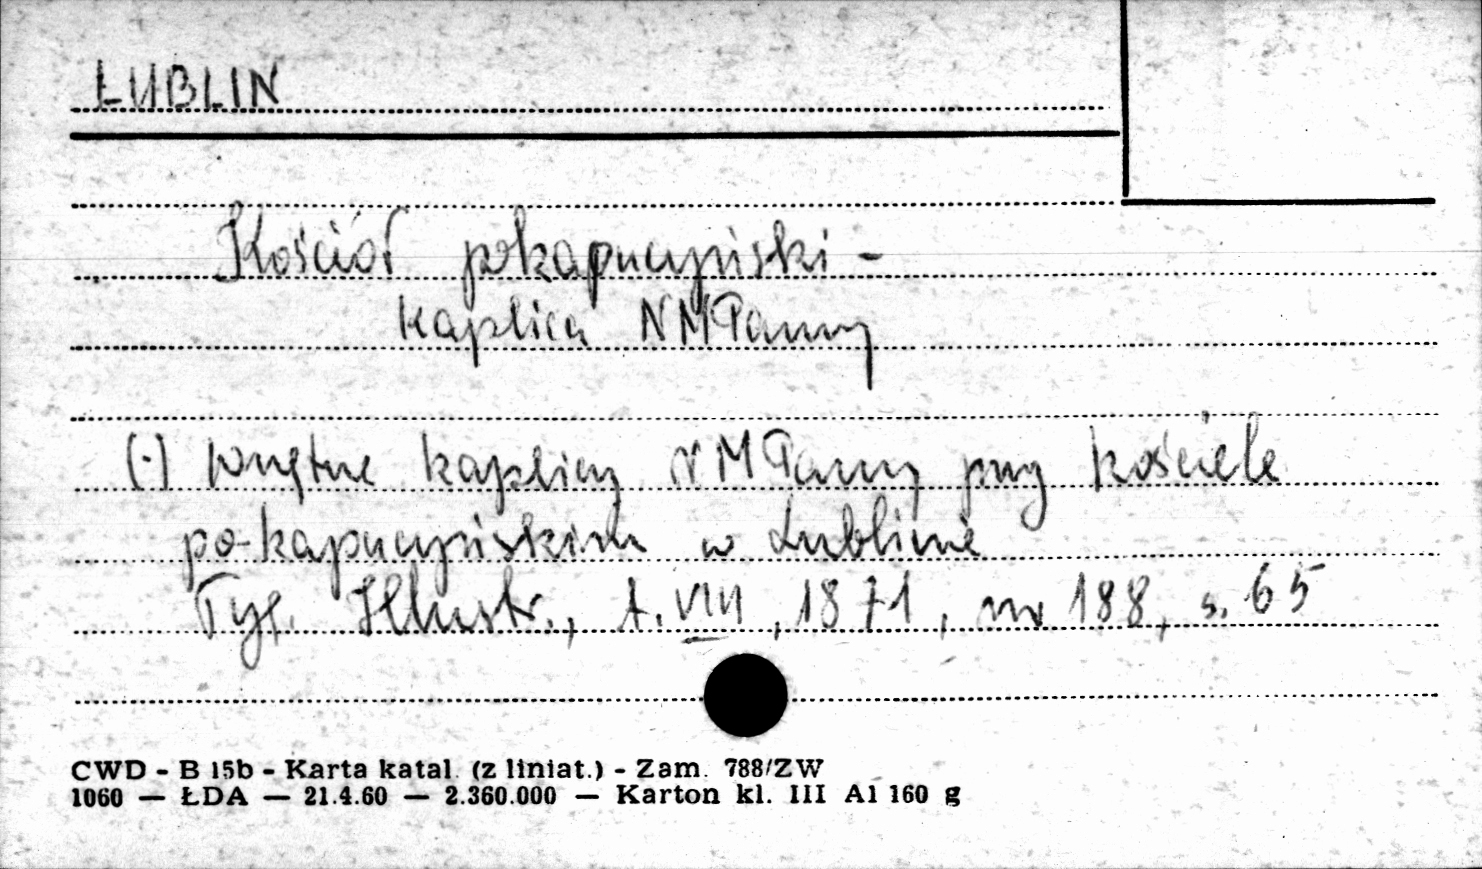 LUBLIN
Kościół pokapucyński -
kaplica NMPanny
(-) Wnętrze kaplicy NMPanny przy kościele
po-kapucyńskim w Lublinie
Tyg. Illustr., t. VIII, 1871, nr 188, s. 65
CWD - B 15b - Karta katal. (z liniat.) - Zam. 788/ZW
1060 — ŁDA — 21.4.60 — 2.360.000 — Karton kl. III A1 160 g